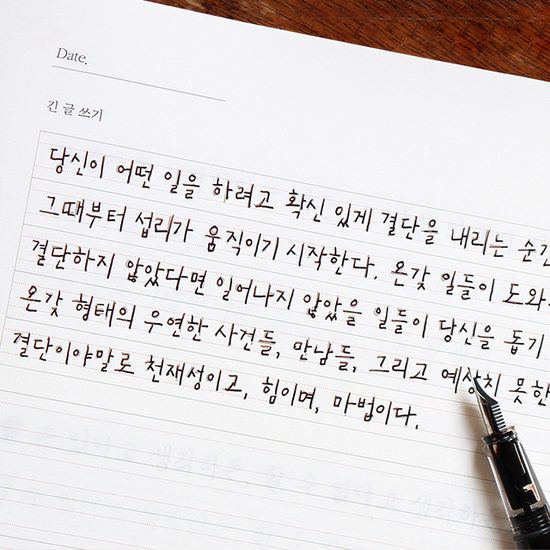 Date.
긴 글 쓰기
당신이 어떤 일을 하려고 확신 있게 결단을 내리는 순간
그때부터 섭리가 움직이기 시작한다. 온갖 일들이 도와.
결단하지 않았다면 일어나지 않았을 일들이 당신을 돕기
온갖 형태의 우연한 사건들, 만남들, 그리고 예상치 못한
결단이야말로 천재성이고, 힘이며, 마법이다.